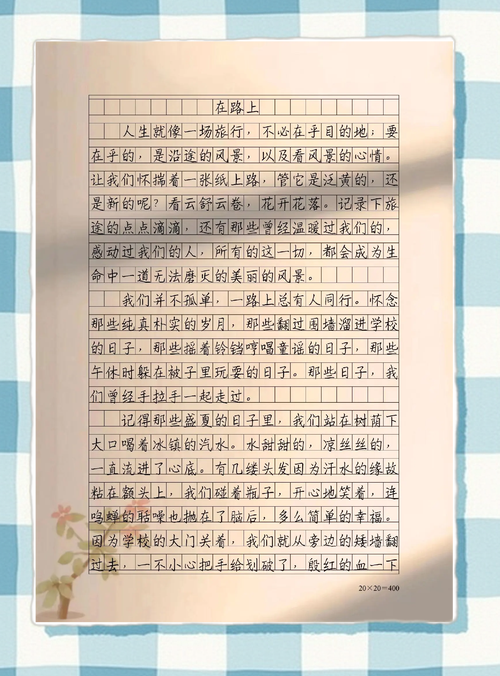 在路上
人生就像一场旅行，不必在乎目的地；要
在乎的，是沿途的风景，以及看风景的心情。
让我们怀揣着一张纸上路，管它是泛黄的，还
是新的呢？看云舒云卷，花开花落。记录下旅
途的点点滴滴，还有那些曾经温暖过我们的，
感动过我们的人，所有的这一切，都会成为生
命中一道无法磨灭的美丽的风景。
我们并不孤单，一路上总有人同行。怀念
那些纯真朴实的岁月，那些翻过围墙溜进学校
的日子，那些摇着铃铛哼唱童谣的日子，那些
午休时躲在被子里玩耍的日子。那些日子，我
们曾经手拉手一起走过。
记得那些盛夏的日子里，我们站在树荫下
大口喝着冰镇的汽水。水甜甜的，凉丝丝的，
一直流进了心底。有几缕头发因为汗水的缘故
粘在额头上，我们碰着瓶子，开心地笑着，连
鸣蝉的聒噪也抛在了脑后，多么简单的幸福。
因为学校的大门关着，我们就从旁边的矮墙翻
过去，一不小心把手给划破了，殷红的血一下
20×20=400